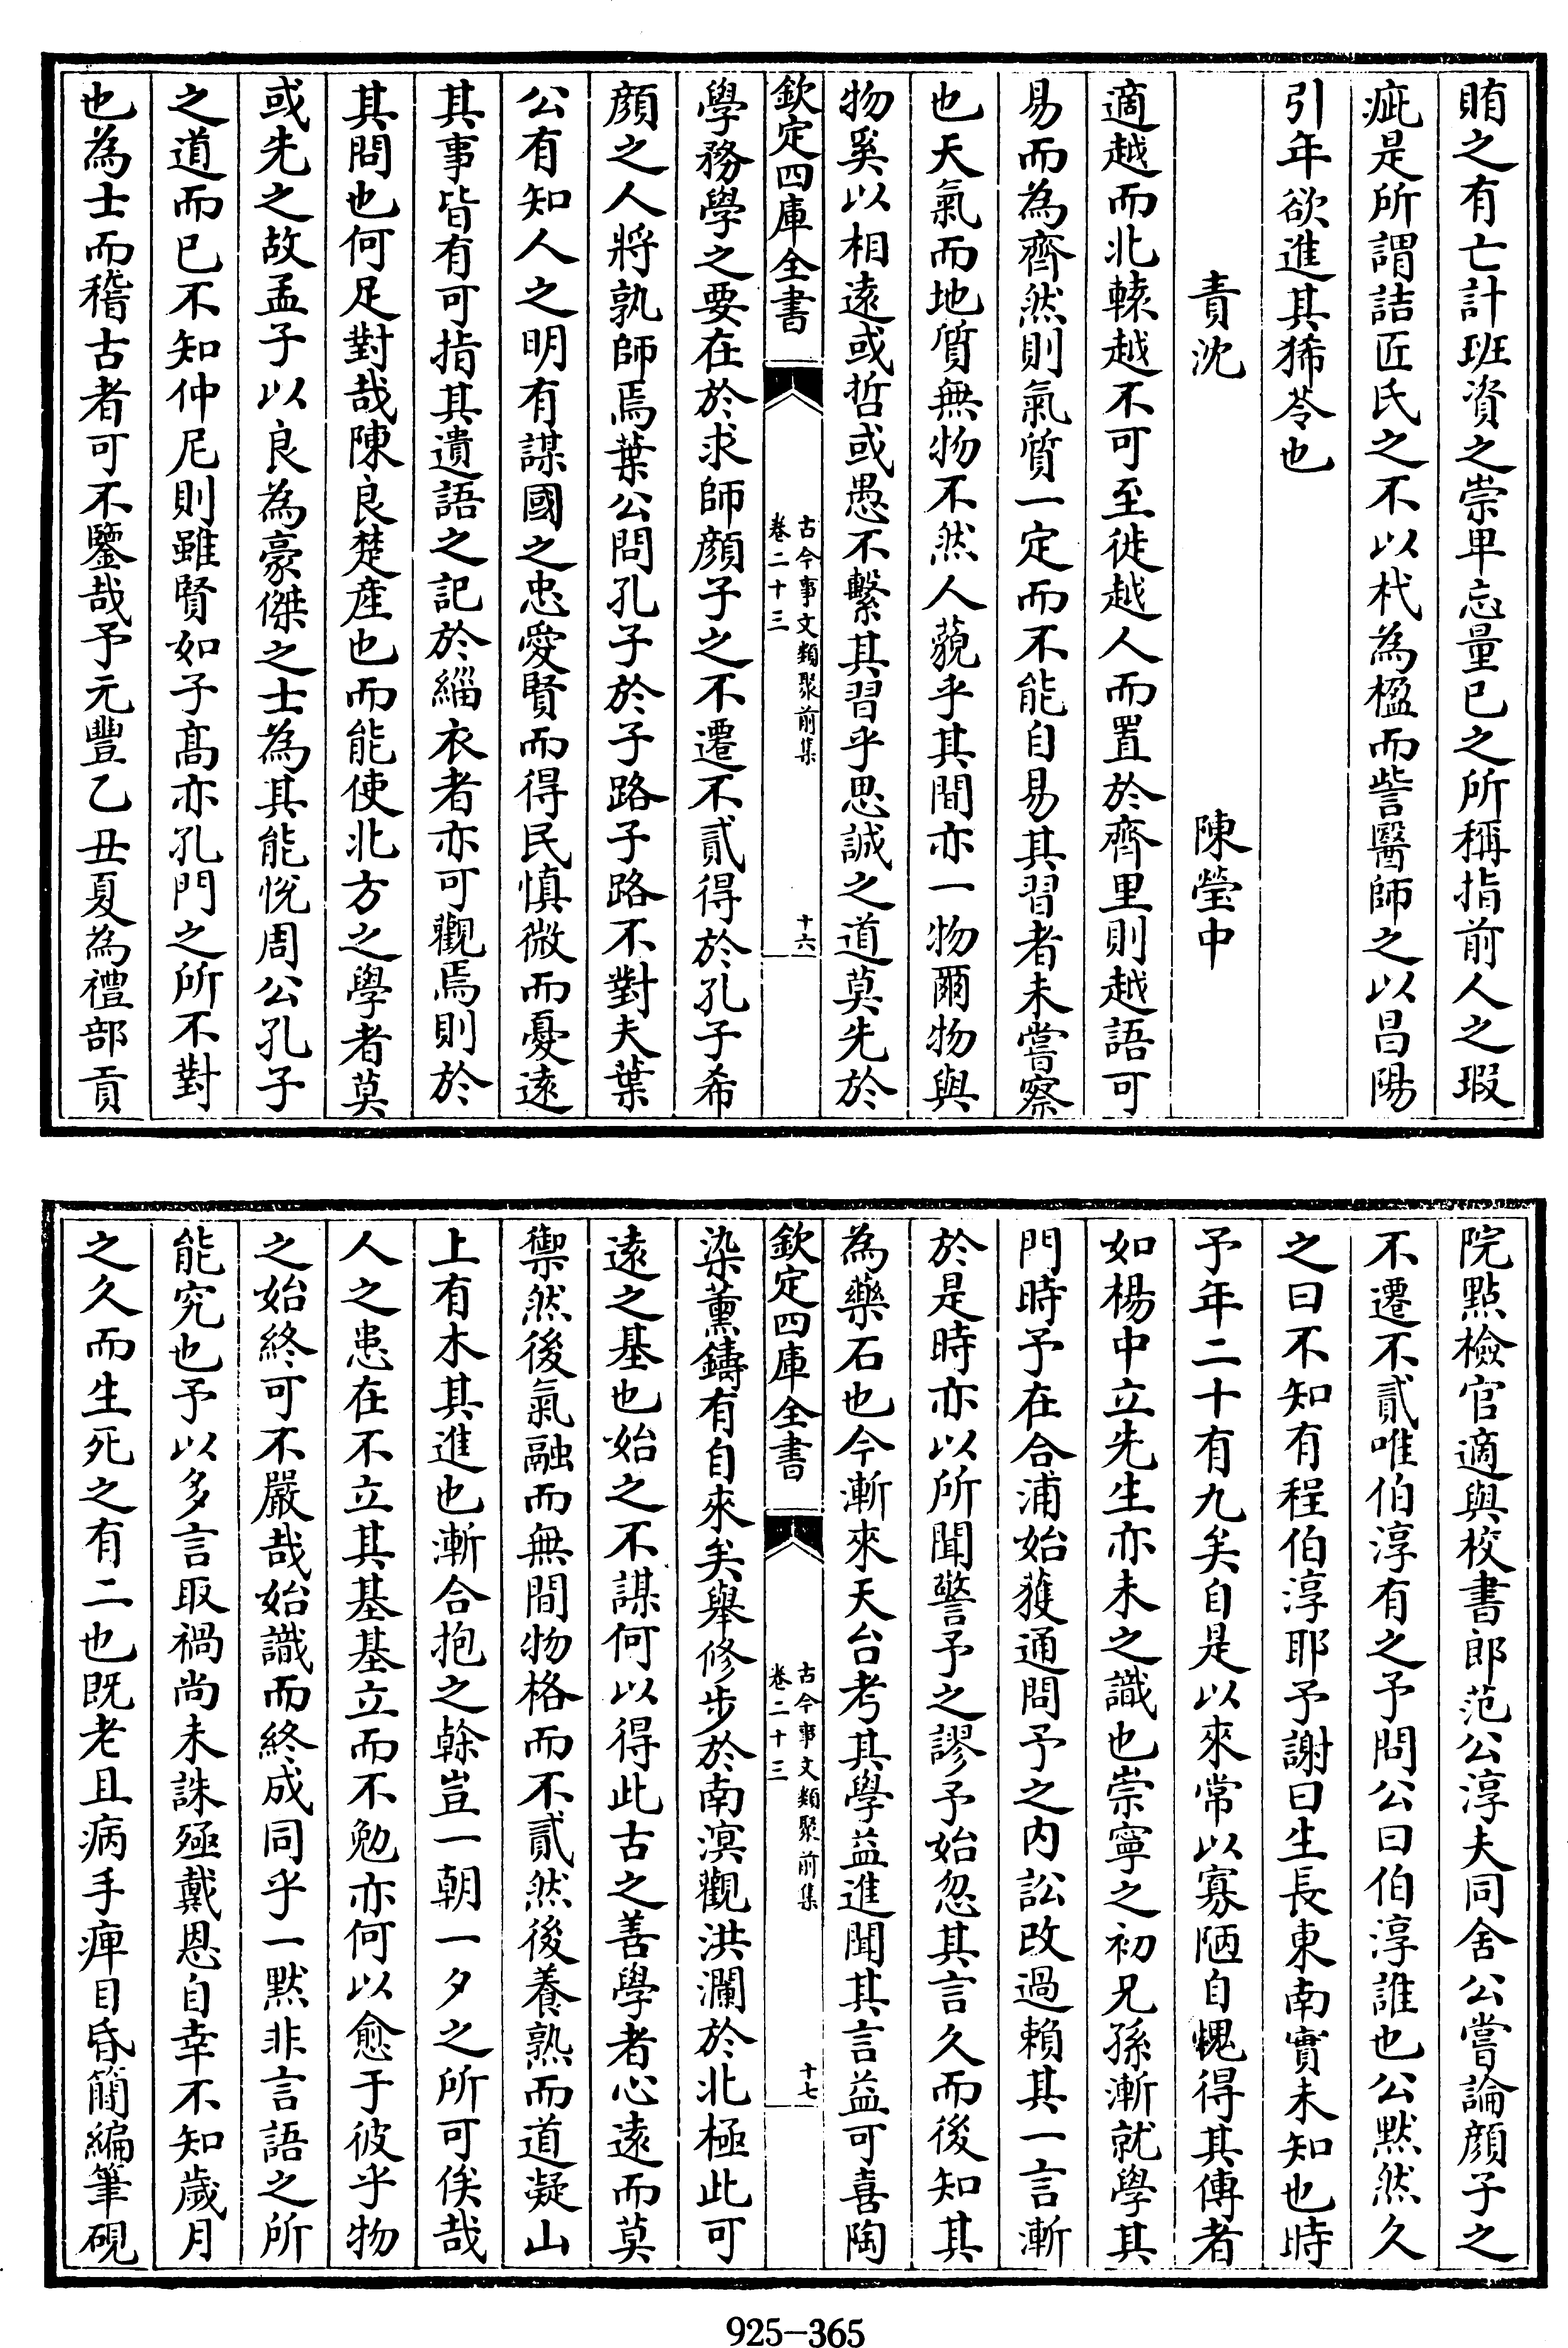 賄之有亡計班資之崇卑忘量己之所稱指前人之瑕
疵是所謂詰匠氏之不以杙為楹而訾醫師之以昌陽
引年欲進其豨苓也
責沈　陳瑩中
適越而北轅越不可至徙越人而置於齊里則越語可
易而為齊然則氣質一定而不能自易其習者未嘗察
也天氣而地質無物不然人藐乎其間亦一物爾物與
物奚以相遠或哲或愚不繫其習乎思誠之道莫先於
欽定四庫全書
古今事文類聚前集
卷二十三
十六
學務學之要在於求師顔子之不遷不貳得於孔子希
顔之人將孰師焉葉公問孔子於子路子路不對夫葉
公有知人之明有謀國之忠愛賢而得民慎微而憂遠
其事皆有可指其遺語之記於緇衣者亦可觀焉則於
其問也何足對哉陳良楚產也而能使北方之學者莫
或先之故孟子以良為豪傑之士為其能悅周公孔子
之道而已不知仲尼則雖賢如子髙亦孔門之所不對
也為士而稽古者可不鑒哉予元豐乙丑夏為禮部貢
院點檢官適與校書郎范公淳夫同舍公嘗論顔子之
不遷不貳唯伯淳有之予問公曰伯淳誰也公默然久
之曰不知有程伯淳耶予謝曰生長東南實未知也時
予年二十有九矣自是以來常以寡陋自愧得其傳者
如楊中立先生亦未之識也崇寧之初兄孫漸就學其
門時予在合浦始獲通問予之內訟改過賴其一言漸
於是時亦以所聞警予之謬予始忽其言久而後知其
為藥石也今漸來天台考其學益進聞其言益可喜陶
欽定四庫全書
古今事文類聚前集
卷二十三
十七
染薰鑄有自來矣舉修步於南溟觀洪瀾於北極此可
遠之基也始之不謀何以得此古之善學者心遠而莫
禦然後氣融而無間物格而不貳然後養熟而道凝山
上有木其進也漸合抱之榦豈一朝一夕之所可俟哉
人之患在不立其基基立而不勉亦何以愈于彼乎物
之始終可不嚴哉始識而終成同乎一默非言語之所
能究也予以多言取禍尚未誅殛戴恩自幸不知歲月
之久而生死之有二也既老且病手痺目昏簡編筆硯
925-365